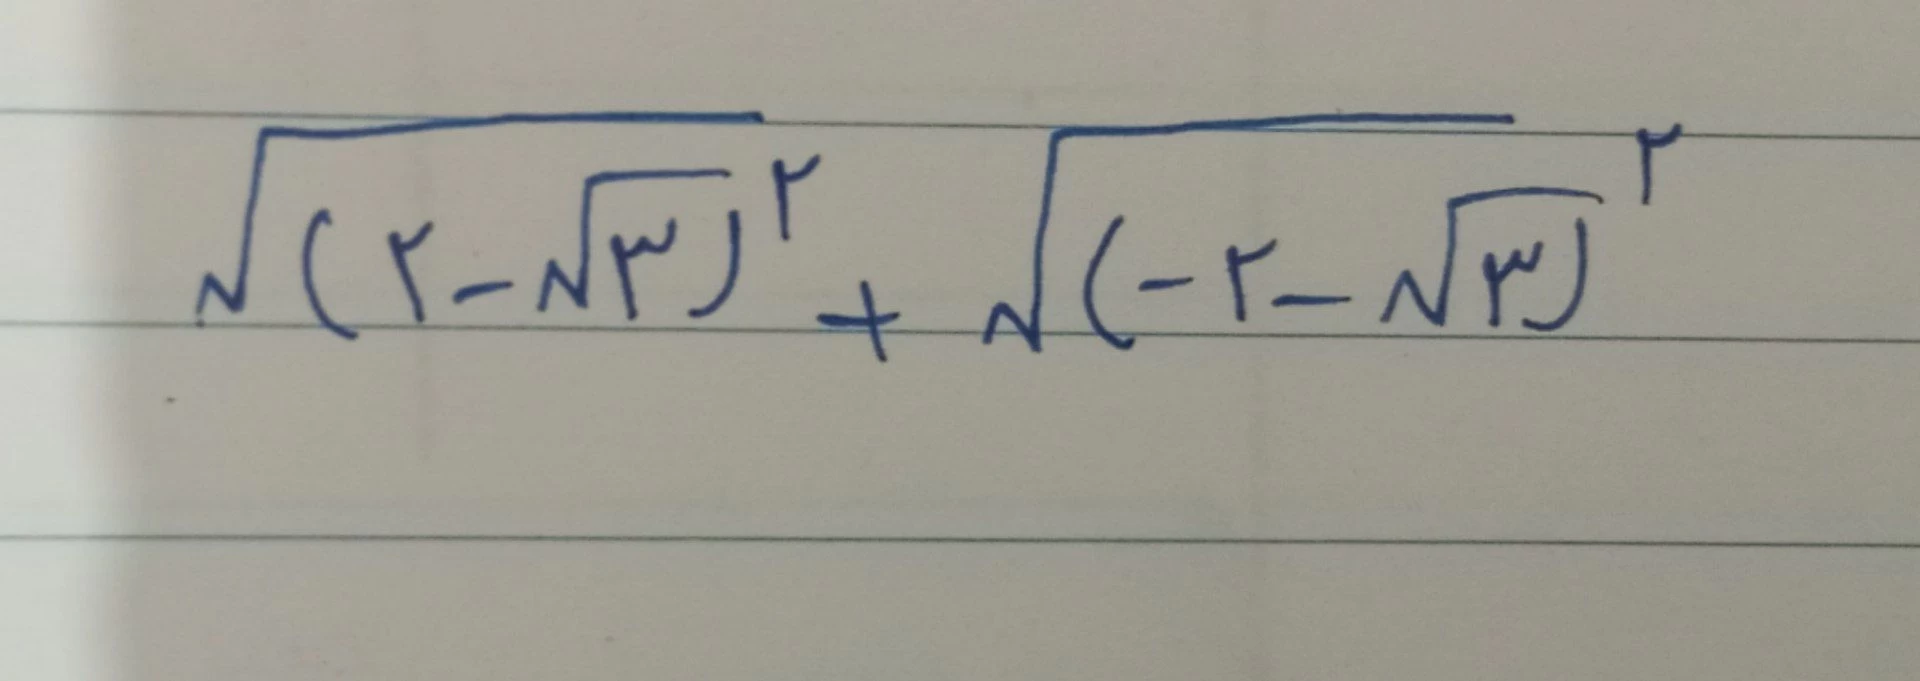 √(۲-√۳)^۲ + √(-۲-√۳)^۲